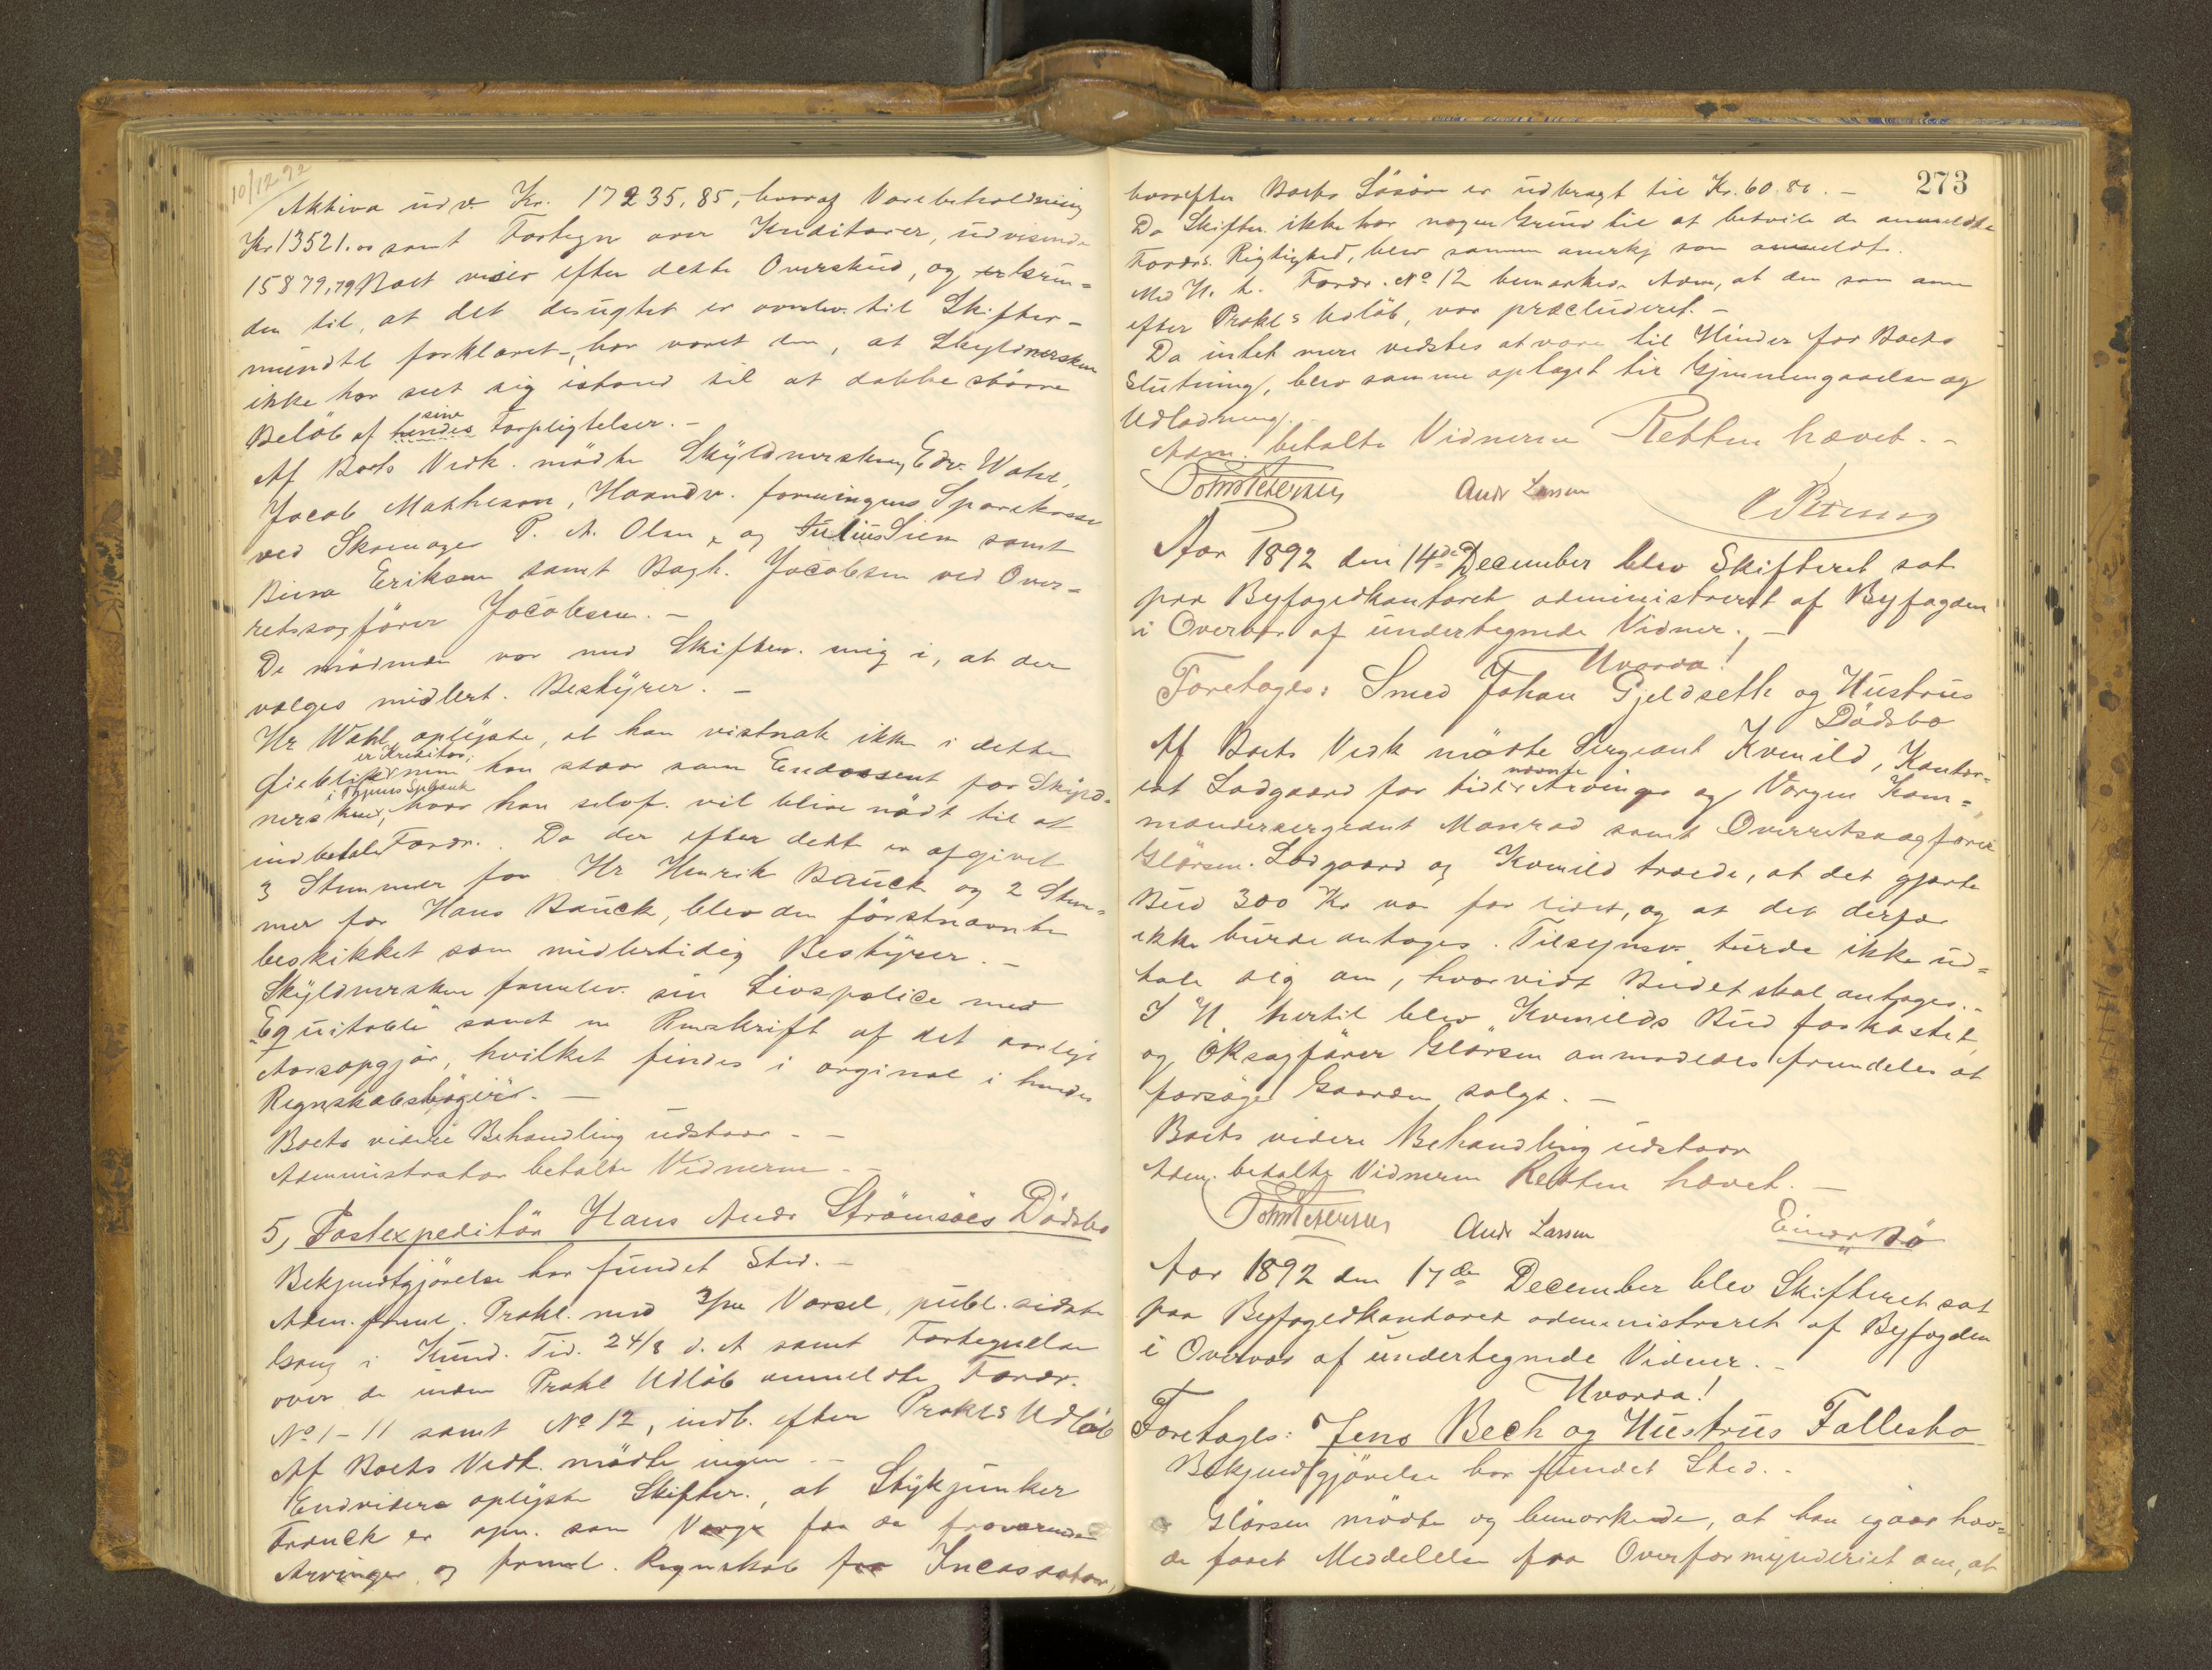 10/12 92
Aktiva udv. Kr. 17235,85, hvoraf Varebeholdning
Kr 13521.00 samt Fortegn over Kreditorer, udvisende
15879,79 Boet viser efter dette Overskud, og Grun-
den til, at det desugtet er overlev. til Skifter-
mundtl forklaret, har været den, at Skyldnersken
ikke har seet sig istand til at dække större
Belöb af hendes sine Forpligtelser. -
Af Boets Vedk. mödte Skyldnersken, Edv. Wahl,
Jacob Mathesen, Haandv. foreningens Sparekasse
ved Skomager P. A. Olsen, og Julius Siem samt
Eriksen samt Bagh. Jacobsen ved Over-
retssagförer Jacobsen. -
De mödende var med Skifterv. enig i, at der
vælges midlert. Bestyrer. -
Hr Wahl oplyste, at han vistnok ikke i dette
Öieblik er Kreditor; men han staar som Endossent for Skyld-
nersken, i Spbank hvor han selvf. vil blive nödt til at
indbetale Fordr. Da der efter dette er afgivet
3 Stemmer for Hr Henrik Bauck og 2 Stem-
mer for Hans Bauck, blev den förstnævnte
beskikket som midlertidig Bestyrer. -
Skyldnersken fremlev. sin Livspolice med
"Equitable" samt en Renskrift af det aarlige
Aarsopgjör, hvilket findes i orginal i hendes
Regnskabsböger. -
Boets videre Behandling udstaar. -
Administrator betalte Vidnerne. -
5, Postexpeditör Hans Andr Strömsöes Dödsbo
Bekjendtgjörelse har fundet Sted. -
Adm. freml. Prokl. med Varsel, publ. sidste
Gang i Kund. Tid. 24/8 d. A samt Fortegnelse
over de inden Prokl Udlöb anmeldte Fordr.
No 1-11 samt No 12, indk. efter Prokls Udlöb
Af Boets Vedk. mödte ingen -
Endvidere oplyste Skifterv., at Stykjunker
Franck er opn. som Værge for de fraværende
Arvinger og freml. Regnskab fra Incassator,
273
hvorefter Boets Lösöre er udbragt til Kr. 60.80. -
Da Skifterv. ikke har nogen Grund til at betvile de anmeldte
Fordrs. Rigtighed, blev samme anerkj som anmeldt.
Med H. t. Fordr. No 12 bemærkede Adm, at den som anm
efter Prokls Udlöb, var præcluderet. -
Da intet mere vidstes at være til Hinder for Boets
Slutning, blev samme optaget til Gjennemgaaelse og
Udlodning.
Adm. betalte Vidnerne Retten hævet. -
John Petersen Andr Larsen
Aar 1892 den 14de December blev Skifteret sat
paa Byfogedkontoret administreret af Byfogden
i Overvær af undertegnede Vidner. -
Hvorda!
Foretages: Smed Johan Gjeldseth og Hustrus
Dödsbo
Af Boets Vedk mödte Sergeant Kvenild, Kontor-
ist Ladgaard for tidl. nævnte Arvinger og Værgen Kom-
mandersergeant Monrad samt Overretssagförer
Glörsen. Ladgaard og Kvenild troede, at det gjorte
Bud 300 Kr var for lidet, og at det derfor
ikke burde antages. Tilsynsv. turde ikke ud-
tale sig om, hvorvidt Budet skal antages. -
I H. hertil blev Kvenilds Bud forkastet,
og ORsagförer Glörsen anmodedes fremdeles at
forsöge Gaarden solgt. -
Boets videre Behandling udstaar
Adm. betalte Vidnerne Retten hævet. -
John Petersen Andr Larsen Einar Bö
Aar 1892 den 17de December blev Skifteret sat
paa Byfogedkontoret administreret af Byfogden
i Overvær af undertegnede Vidner. -
Hvorda!
Foretages: Jens Bech og Hustrus Fallesbo
Bekjendtgjörelse har fundet Sted. -
Glörsen mödte og bemærkede, at han igaar hav-
de faaet Meddelelse fra Overformynderiet om, at